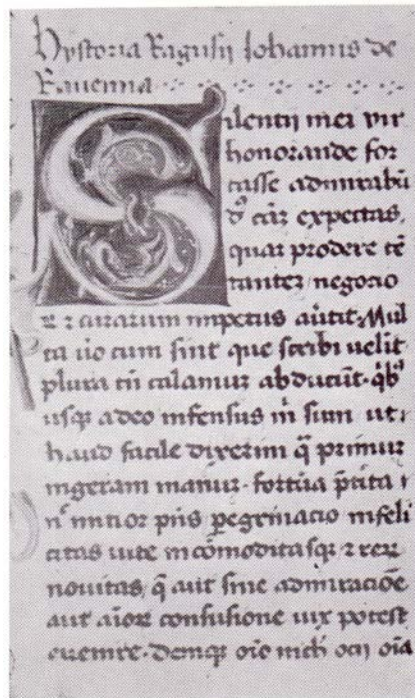 Hystoria Ragusij Iohannis de
Rauenna
Silentij mei vir
honorande for
tasse admirabũ
dꝰ cãs expectas.
quas prodere tẽ
tanter negocio
ꝝ ⁊ curarum impetus aũtit. Mul
ta ũo cum sint que scribi uelit
plura tñ calamus abducũt. qͥbꝰ
usqꝫ adeo infensus m̃ sum ut
haud facile dixerim q̃ primus
ingeram manus. fortũa p̃tita
nͨ mitior p̃iis pegrinacio infeli
citas uite incõmoditasqꝫ ⁊ reꝝ
nouitas, q̃ aut sine admiraciõe
aut aĩoꝝ confusione uix potest
euenire. deniqꝫ oĩe mich ocij oĩa